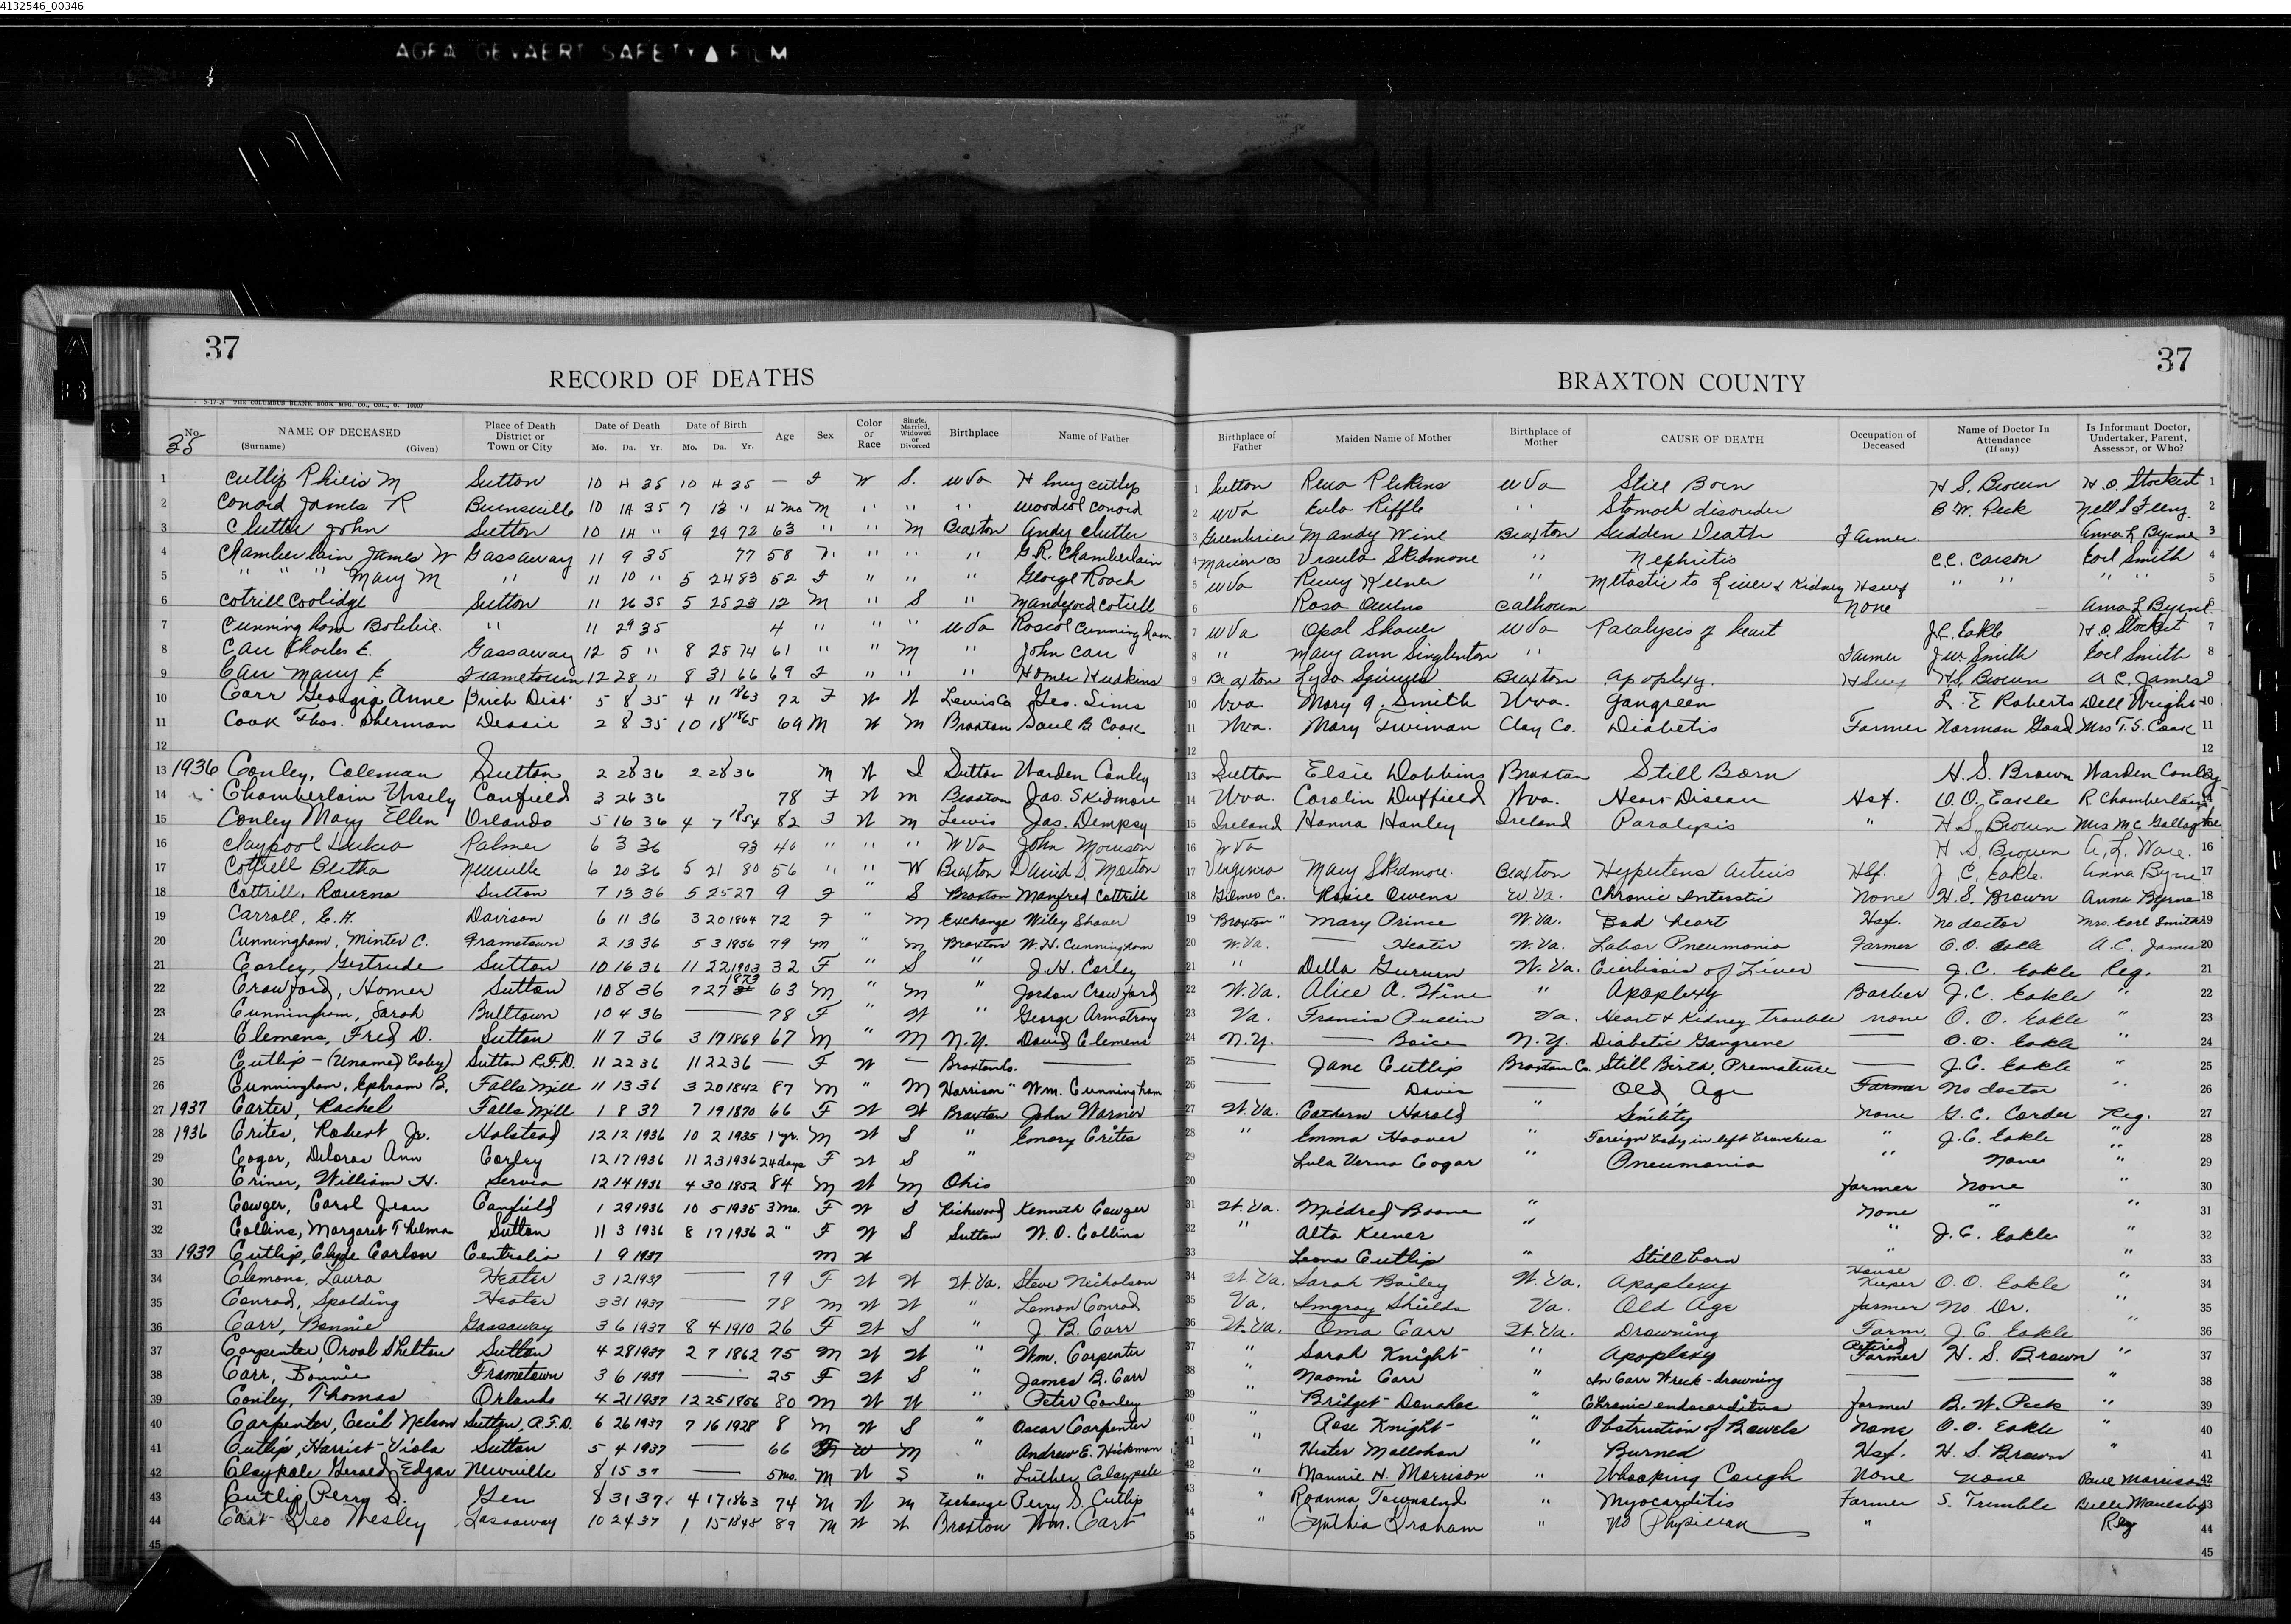 4132546_00346
AGFA GEVAERT SAFETY FILM
37
RECORD OF DEATHS
THE COLUMBUS BLANK BOOK MFG. CO., COL., O.
BRAXTON COUNTY
37
No. NAME OF DECEASED (Surname) (Given) Place of Death District or Town or City Date of Death Mo. Da. Yr. Date of Birth Mo. Da. Yr. Age Sex Color or Race Single, Married, Widowed or Divorced Birthplace Name of Father Birthplace of Father Maiden Name of Mother Birthplace of Mother CAUSE OF DEATH Occupation of Deceased Name of Doctor In Attendance (If any) Is Informant Doctor, Undertaker, Parent, Assessor, or Who?
35
1 Cutlip M Sutton 10 4 35 10 4 35 — F W S. W Va Cutlip 1 Sutton Rena Perkins W Va Still Born H S. Brown H.O. Stockert 1
2 Conard James R Burnsville 10 14 35 7 13 " 4 mo M " " " Conard 2 W Va Eula Riffle " Stomach disorder B W. Peck Nell S 2
3 Clutter John Sutton 10 14 " 9 29 72 63 " " M Braxton Andy Clutter 3 Greenbrier Mandy Wine Braxton Sudden Death Farmer Anna L Byrne 3
4 Chamberlain James W Gassaway 11 9 35 77 58 " " " " G.R. Chamberlain 4 Marion Co Ursula Skidmore " Nephritis C.C. Carson Earl Smith 4
5 " " " Mary M " 11 10 " 5 24 83 52 F " " " George Roach 5 W Va Keener " Metastic to Liver & Kidney " " " " 5
6 Cotrill Coolidge Sutton 11 26 35 5 25 23 12 M " S " Cotrill 6 Rosa Owens Calhoun None — Anna L Byrne 6
7 Cunningham " 11 29 35 4 " " " W Va Roscoe Cunningham 7 W Va Opal Shaver W Va Paralysis of heart J.C. Eakle H.O. Stockert 7
8 Carr Charles E. Gassaway 12 5 " 8 25 74 61 " " M " John Carr 8 " Mary Ann Singleton " Farmer J W Smith Earl Smith 8
9 Carr Mary E Frametown 12 28 " 8 31 66 69 F " " " Homer Huskins 9 Braxton Lyda Braxton Apoplexy. H.S. Brown A C. James 9
10 Carr Georgia Anne Birch Dist 5 8 35 4 11 1863 72 F W W Lewis Co Geo. Sims 10 Mary A. Smith Wva. Gangreen L. E Roberts Dell Wright 10
11 Cook Thos. Sherman Dessie 2 8 35 10 18 1865 69 M W M Braxton Saul B Cook 11 Wva. Mary Clay Co. Diabetis Farmer Norman Goad Mrs T. S. Cook 11
12 12 12
13 1936 Conley, Coleman Sutton 2 28 36 2 28 36 M W Sutton Warden Conley 13 Sutton Elsie Dobbins Braxton Still Born H. S. Brown Warden Conley
14 Chamberlain Ursely Canfield 3 26 36 78 F W M Braxton Jas. Skidmore 14 Wva. Carolin Duffield Wva. Heart Disease Hsf. O. O. Eakle R. Chamberlain
15 Conley Mary Ellen Orlando 5 16 36 4 7 1854 82 F W M Lewis Jas. Dempsy 15 Ireland Hanna Hanley Ireland Paralysis " H S. Brown Mrs Mc Gallagher
16 Claypool Palmer 6 3 36 93 40 " " " W Va John Morrison 16 W Va H S. Brown A. L. Ware. 16
17 Cottrell Bertha Newville 6 20 36 5 21 80 56 " " W Braxton David S. Morton 17 Virginia Mary Skidmore Braxton J C. Eakle. Anna Byrne 17
18 Cottrill, Rowena Sutton 7 13 36 5 25 27 9 F " S Braxton Manfred Cottrill 18 Gilmer Co. Rosie Owens W. Va. Chronic Interstic None H. S. Brown Anna Byrne 18
19 Carroll, E. H. Davison 6 11 36 3 20 1864 72 F " M Exchange Wiley Shaver 19 Braxton " Mary Prince W. Va. Bad heart Hsf. no doctor Mrs. Earl Smith 19
20 Cunningham, Minter C. Frametown 2 13 36 5 3 1856 79 M " M Braxton W. H. Cunningham 20 W. Va. — Heater W. Va. Labor Pneumonia Farmer O. O. Eakle A. C. James 20
21 Corley, Gertrude Sutton 10 16 36 11 22 1903 32 F " S " J. H. Corley 21 " Della W. Va. of Liver — J. C. Eakle Reg. 21
22 Crawford, Homer Sutton 10 8 36 7 27 1873 63 M " M " Jordan Crawford 22 W. Va. Alice A. Wine " Apoplexy Barber J. C. Eakle " 22
23 Cunningham, Sarah Bulltown 10 4 36 — 78 F " W " George Armstrong 23 Va. Francis Va. Heart & Kidney Trouble none O. O. Eakle " 23
24 Clemens, Fred D. Sutton 11 7 36 3 17 1869 67 M " M N.Y. David Clemens 24 N.Y. — Boice N.Y. Diabetic Gangrene — O. O. Eakle " 24
25 Cutlip - (Unamed baby) Sutton R.F.D. 11 22 36 11 22 36 — F W — Braxton Co. — 25 — Jane Cutlip Braxton Co. Still Birth, Premature — J. C. Eakle " 25
26 Cunningham, Ephram B. Falls Mill 11 13 36 3 20 1842 87 M " M Harrison " Wm. Cunningham 26 — — Davis — Old Age Farmer No doctor " 26
27 1937 Carter, Rachel Falls Mill 1 8 37 7 19 1870 66 F W W Braxton John Warner 27 W. Va. Cathern Harold " Senility None G. C. Corder Reg. 27
28 1936 Crites, Robert Jr. Halstead 12 12 1936 10 2 1935 1 yr. M W S " Emory Crites 28 " Emma Hoover " Foreign body in left bronchus " J. C. Eakle " 28
29 Cogar, Deloras Ann Corley 12 17 1936 11 23 1936 24 days F W S " 29 Lula Verna Cogar " Pneumonia " None " 29
30 Criner, William H. Servia 12 14 1936 4 30 1852 84 M W M Ohio 30 farmer None " 30
31 Cowger, Carol Jean Canfield 1 29 1936 10 5 1935 3 Mo. F W S Richwood Kenneth Cowger 31 W. Va. Mildred Boone " None " " 31
32 Collins, Margaret Thelma Sutton 11 3 1936 8 17 1936 2 " F W S Sutton W. O. Collins 32 " Alta Keener " " J. C. Eakle " 32
33 1937 Cutlip, Clyde Carlon Centralia 1 9 1937 M W 33 Leona Cutlip " Stillborn " " 33
34 Clemons, Laura Heater 3 12 1937 — 79 F W W W. Va. Steve Nicholson 34 W. Va. Sarah Bailey W. Va. Apoplexy House Keeper O. O. Eakle " 34
35 Conrad, Spalding Heater 3 31 1937 — 78 M W W " Lemon Conrad 35 Va. Imgray Shields Va. Old Age farmer No Dr. " 35
36 Carr, Bonnie Gassaway 3 6 1937 8 4 1910 26 F W S " J. B. Carr 36 W. Va. Oma Carr W. Va. Drowning Farm. J. C. Eakle " 36
37 Carpenter, Orval Shelton Sutton 4 28 1937 2 7 1862 75 M W W " Wm. Carpenter 37 " Sarah Knight " Apoplexy Retired Farmer H. S. Brown " 37
38 Carr, Bonnie Frametown 3 6 1937 — 25 F W S " James B. Carr 38 " Naomi Carr " In Carr Wreck - drowning — — " 38
39 Conley, Thomas Orlando 4 21 1937 12 25 1856 80 M W W " Peter Conley 39 " Bridget Donahoe " Chronic endocarditus farmer B. W. Peck " 39
40 Carpenter, Cecil Nelson Sutton, R.F.D. 6 26 1937 7 16 1928 8 M W S " Oscar Carpenter 40 " Rose Knight " Obstruction of Bowels None O. O. Eakle " 40
41 Cutlip, Harriet Viola Sutton 5 4 1937 — 66 F W M " Andrew E. Hickman 41 " Hester Mollohan " Burned Hsf. H. S. Brown " 41
42 Claypole Gerald Edgar Newville 8 15 37 — 5 mo. M W S " Luther Claypole 42 " Mannie H. Morrison " Whooping Cough None None Paul Morrison 42
43 Cutlip, Perry S. Gem 8 31 37 4 17 1863 74 M W M Exchange Perry S. Cutlip 43 " Roanna Townsend " Myocarditis Farmer S. Trimble Belle 43
44 Cart Geo Wesley Gassaway 10 24 37 1 15 1848 89 M W W Braxton Wm. Cart 44 " Cynthia Graham " No Physician " Reg 44
45 45 45